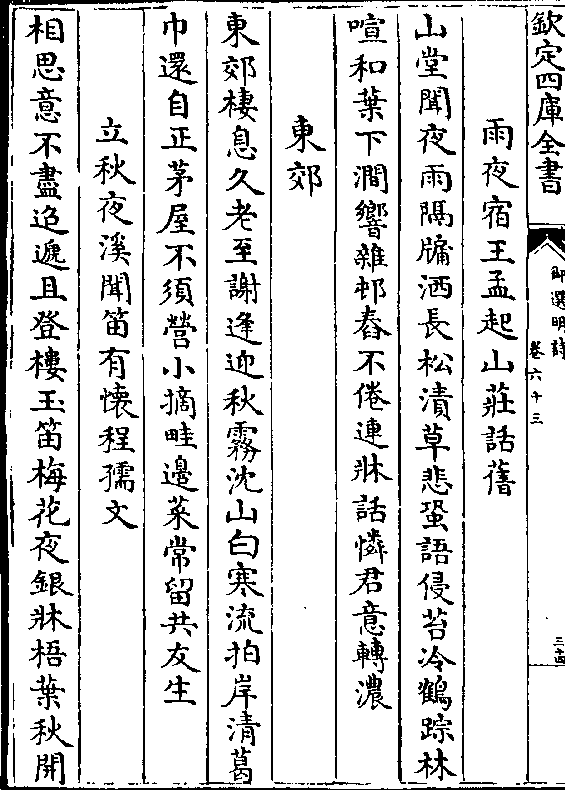 欽定四庫全書
御選明詩
卷六十三
三十四
雨夜宿王孟起山莊話舊
山堂聞夜雨隔牗洒長松漬草悲蛩語侵苔冷鶴踪林
喧和葉下澗響雜邨舂不倦連牀話憐君意轉濃
東郊
東郊棲息久老至謝逢迎秋霧沈山白寒流拍岸清葛
巾還自正茅屋不須營小摘畦邊菜常留共友生
立秋夜溪聞笛有懷程孺文
相思意不盡迢遞且登樓玉笛梅花夜銀牀梧葉秋開